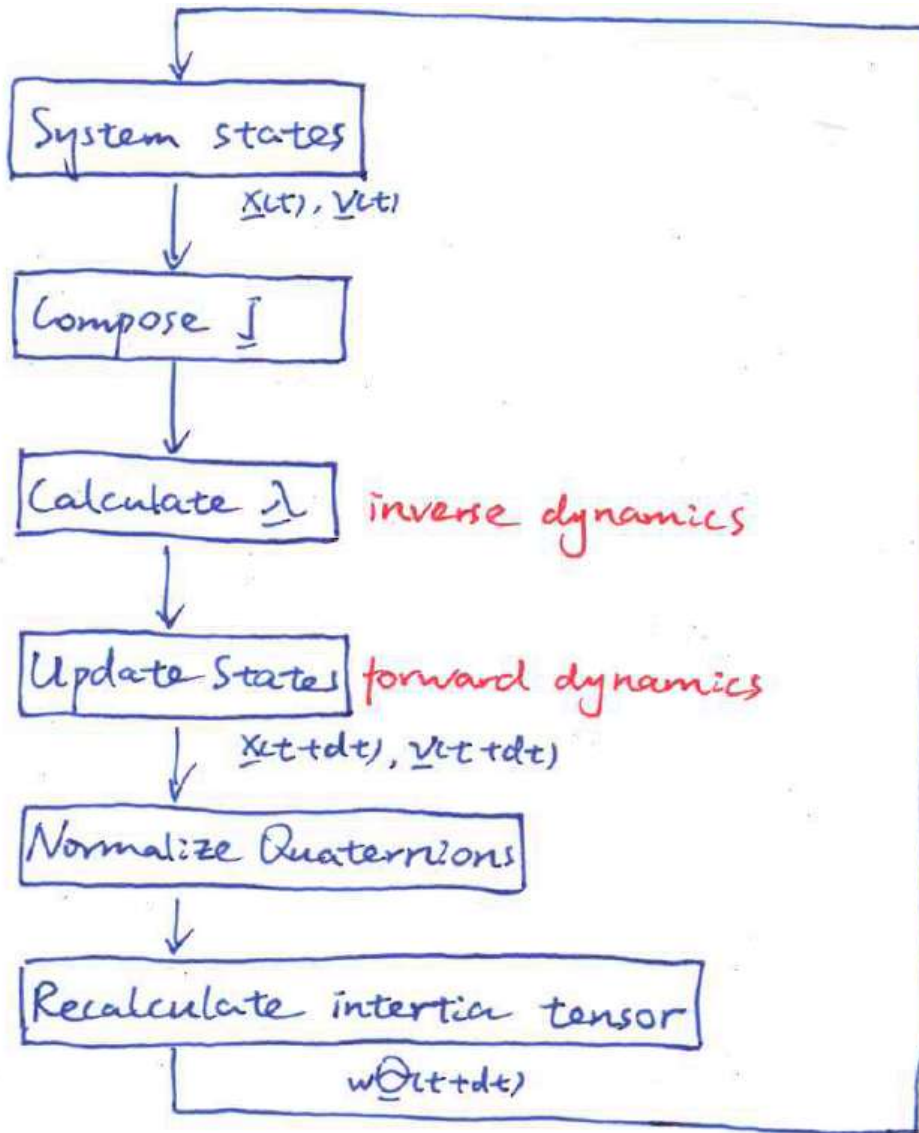 System states
x(t), v(t)
Compose J
Calculate λ inverse dynamics
Update States forward dynamics
x(t+dt), v(t+dt)
Normalize Quaternions
Recalculate intertia tensor
wΘ(t+dt)